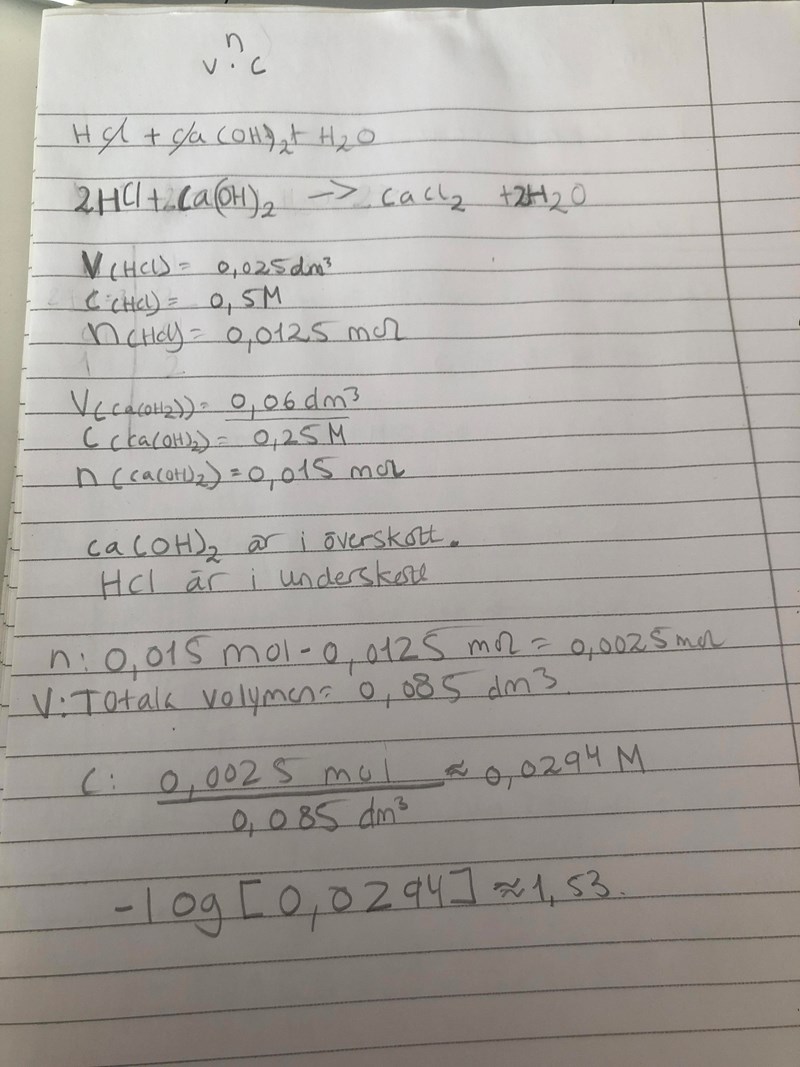 n
v · c
HCl + Ca(OH)2 + H2O
2HCl + Ca(OH)2 -> CaCl2 + 2H2O
V(HCl) = 0,025 dm³
C(HCl) = 0,5 M
n(HCl) = 0,0125 mol
V(Ca(OH2)) = 0,06 dm³
C(Ca(OH)2) = 0,25 M
n(Ca(OH)2) = 0,015 mol
Ca(OH)2 är i överskott.
HCl är i underskott
n: 0,015 mol - 0,0125 mol = 0,0025 mol
V: Totala volymen = 0,085 dm3
C: 0,0025 mol ≈ 0,0294 M
0,085 dm³
-log[0,0294] ≈ 1,53.